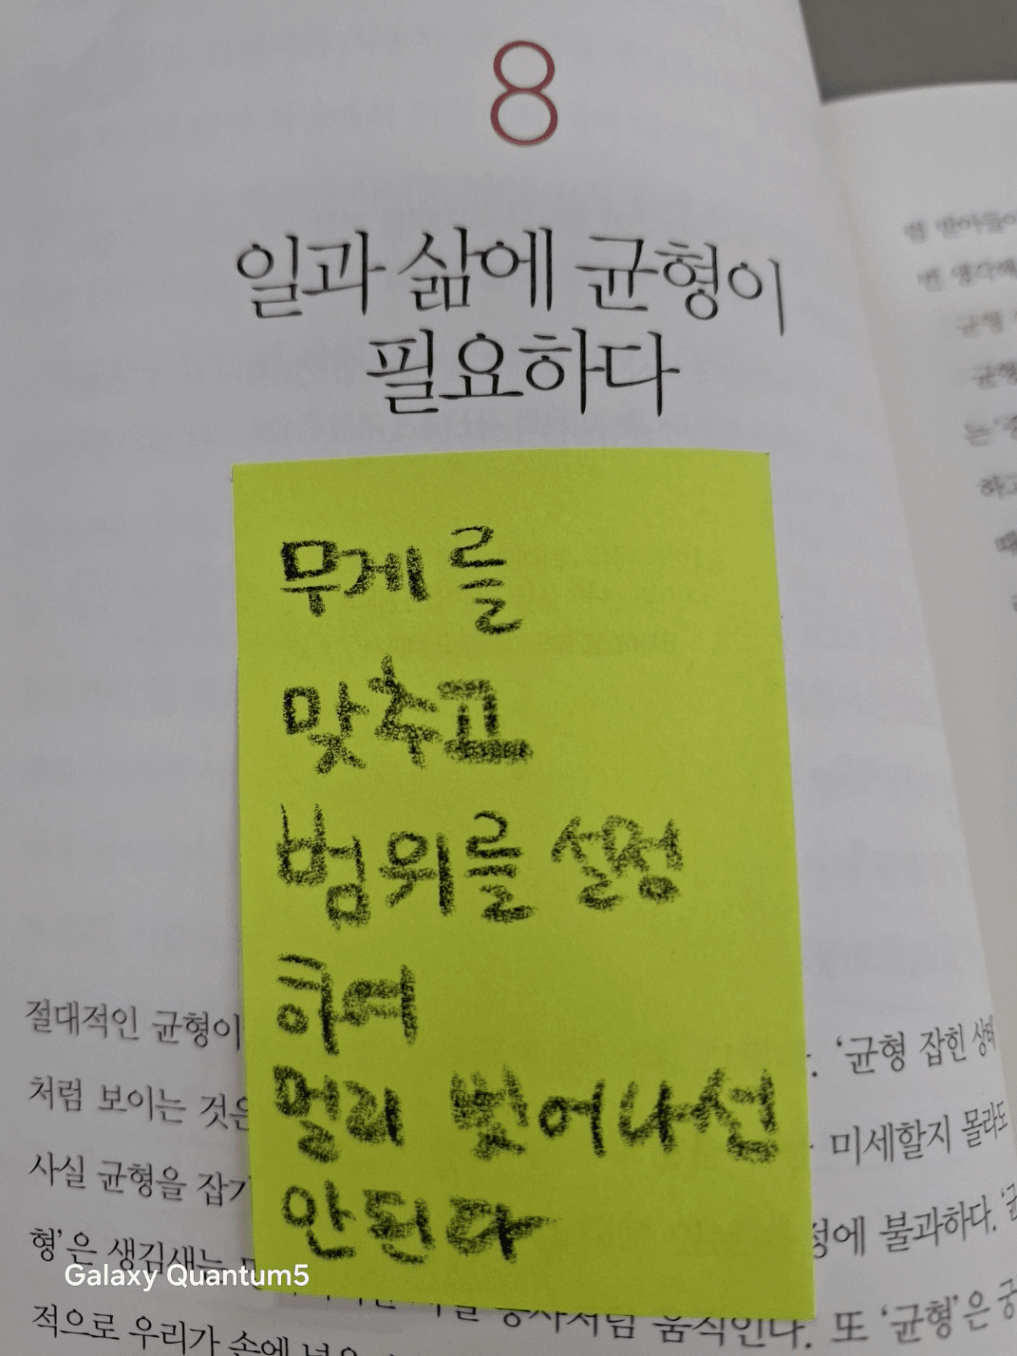 8
일과 삶에 균형이
필요하다
무게를
맞추고
범위를 설정
하여
멀리 벗어나선
안된다
절대적인 균형이
‘균형 잡힌 상태
처럼 보이는 것은
미세할지 몰라도
사실 균형을 잡기
정에 불과하다. ‘균
형’은 생김새는
적으로 우리가 손에
처럼 움직인다. 또 ‘균형’은 궁
Galaxy Quantum5
럼 받아들이
번 생각해
균형
균형
하고
때